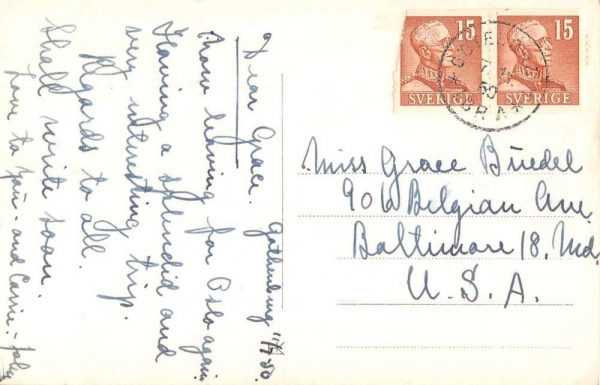 Gothenburg 11/7-50.
Dear Grace.
Know leaving for Oslo again.
Having a splendid and
very interesting trip.
Regards to all.
Shall write soon.
Love to you - and Carrie -
15
SVERIGE
15
SVERIGE
Miss Grace Buedel
906 Belgian Ave
Baltimore 18. Md.
U. S. A.